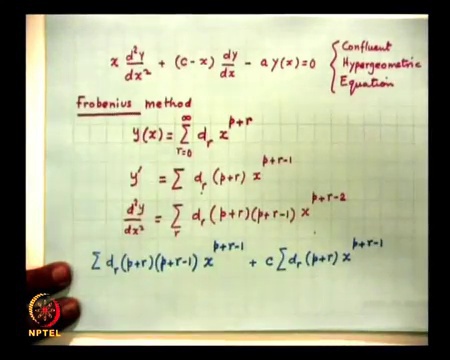 x d²y/dx² + (c-x) dy/dx - a y(x) = 0 { Confluent Hypergeometric Equation }
Frobenius method
y(x) = ∑_{r=0}^{∞} d_r x^{p+r}
y' = ∑ d_r (p+r) x^{p+r-1}
d²y/dx² = ∑_r d_r (p+r)(p+r-1) x^{p+r-2}
∑ d_r (p+r)(p+r-1) x^{p+r-1} + c ∑ d_r (p+r) x^{p+r-1}
NPTEL